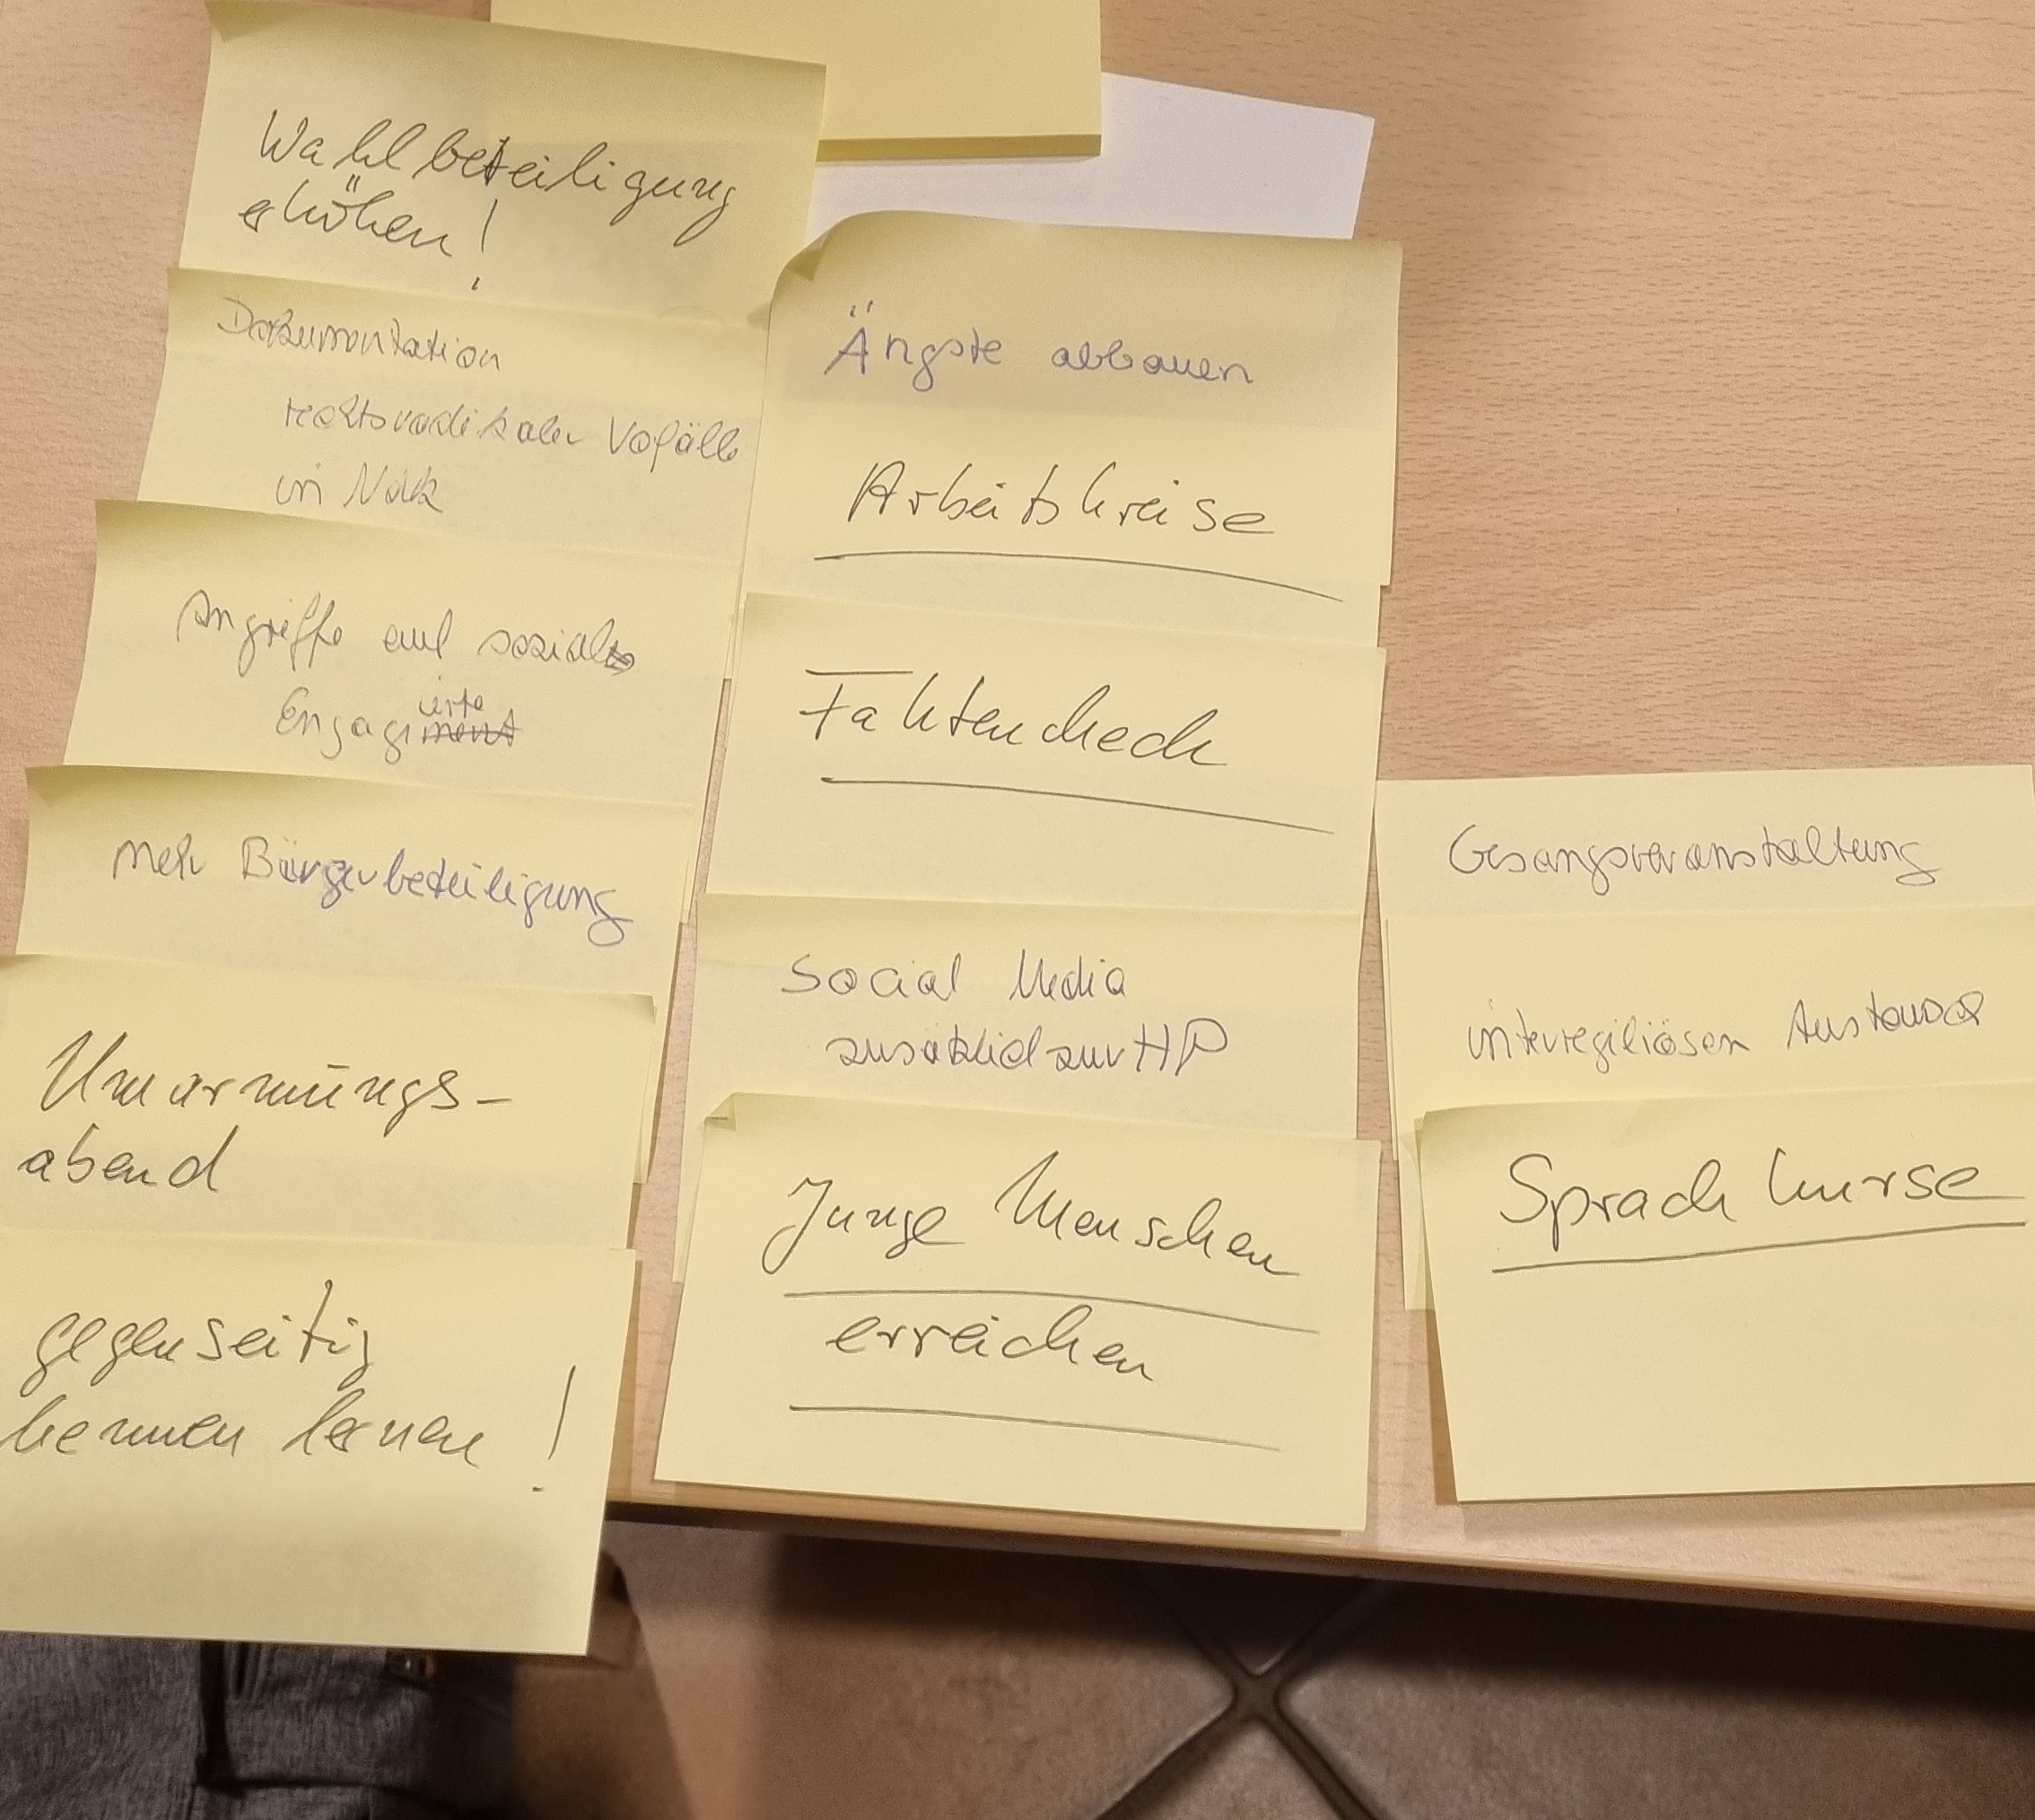 Wahlbeteiligung
erhöhen!
Dokumentation
rechtsradikaler Vofälle
in
Angriffe auf sozial
Engagierte
mehr Bürgerbeteiligung
Umarmungs-
abend
gegenseitig
kennen lernen!
Ängste abbauen
Arbeitskreise
Faktencheck
Social Media
zusätzlich zur HP
Junge Menschen
erreichen
Gesangsveranstaltung
interregiliösen Austausch
Sprachkurse